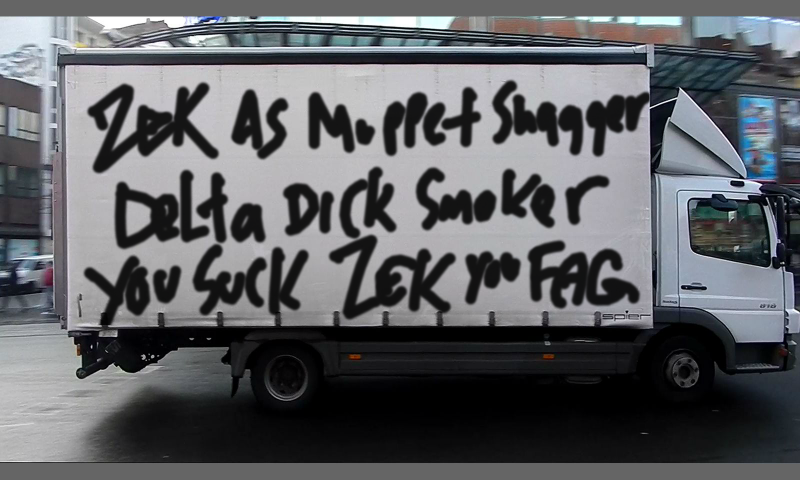 ZEK As Muppet Shagger
Delta DICK Smoker
You Suck ZEK you FAG
spier
818